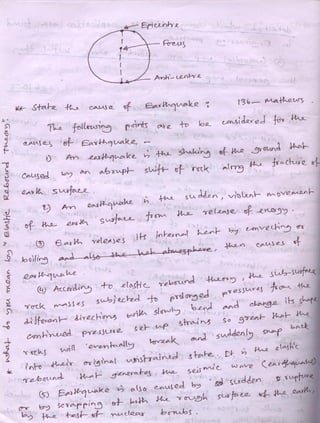 Epicentre
Focus
Anti-centre
State the cause of Earthquake :
136- Mathews
The following points are to be considered for the
causes of Earthquake, —
1) An earthquake is the shaking of the ground that
caused by an abrupt shift of rock along the fracture of
earth surface.
2) An earthquake is the sudden, violent movement
of the earth surface from the release of energy.
③ Earth releases its internal heat by convecting or
boiling and also the hot atmosphere, then causes of
earthquake
④ According to elastic rebound theory, the sub-surface
rock masses subjected to prolonged pressures from the
different directions with slowly bend and change its shape
continued pressure set up strains so great that the
rocks will eventually break and suddenly snap back
into their original unstrained state. It is the elastic
rebound that generates the seismic wave (earthquake)
⑤ Earthquake is also caused by sudden rupture
or by scrapping of both the rough surface of the earth,
by the test of nuclear bombs.
* What do you mean by "elastic Rebound Theory"?